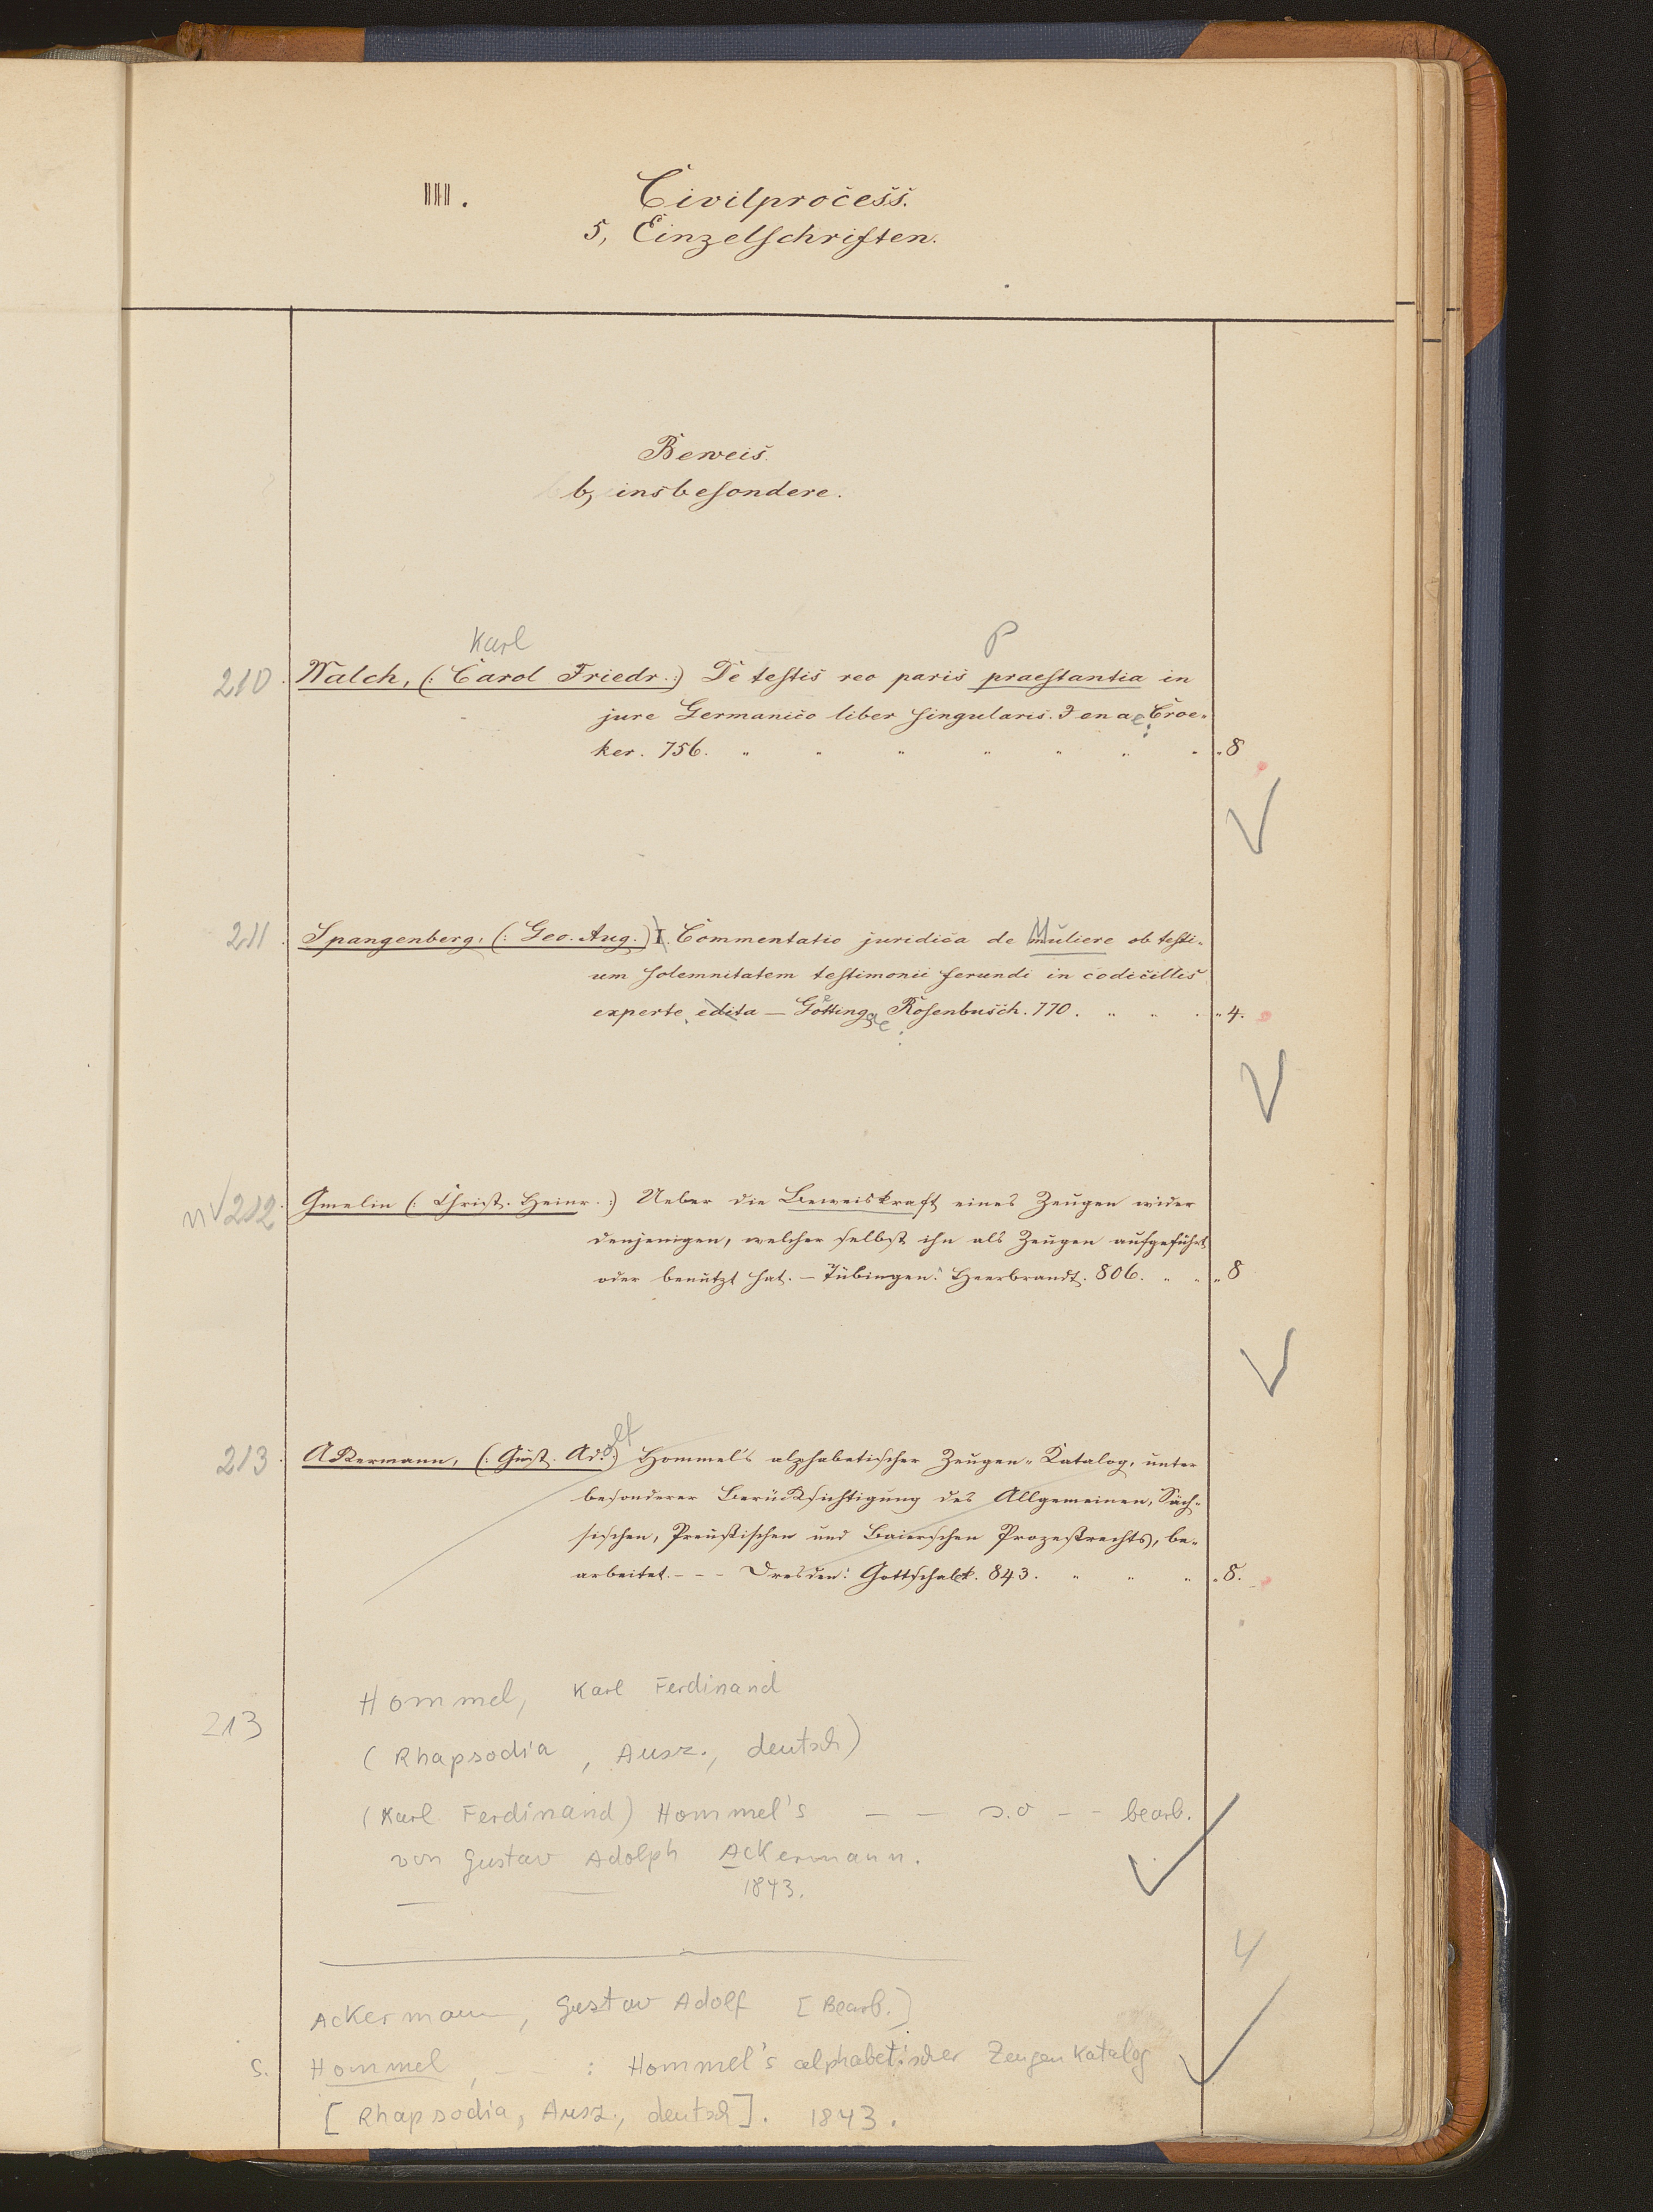 III. Civilprocess.
5, Einzelschriften.
Beweis.
b, insbesondere.
Karl P
210. Walch, (: Carol Friedr.:) De testis reo paris praestantia in
jure Germanico liber singularis. Jenae: Croe-
ker. 756. " " " " " " " "8
211. Spangenberg, (: Geo. Aug.) I. Commentatio juridica de Muliere ob testi-
um solemnitatem testimonii ferundi in codicillis
experte edita — Göttingae: Rosenbusch. 770. " " " "4.
n√212. Gmelin (: Christ. Heinr.:) Ueber die Beweiskraft eines Zeugen wider
denjenigen, welcher selbst ihn als Zeugen aufgeführt
oder benützt hat. — Tübingen: Heerbrandt. 806. " " "8
213. Ackermann, (: Gust. Adolf) Hommel's alphabetischer Zeugen-Katalog, unter
besonderer Berücksichtigung des Allgemeinen, Säch-
sischen, Preußischen und Baierschen Prozeßrechts, be-
arbeitet. - - - Dresden: Gottschalk. 843. " " " "8.
Hommel, Karl Ferdinand
213
(Rhapsodia, Ausz., deutsch)
(Karl Ferdinand) Hommel's — — s.o - - bearb.
von Gustav Adolph Ackermann.
1843.
4
Ackermann, Gustav Adolf [Bearb.]
s. Hommel, - - : Hommel's alphabetischer Zeugen Katalog
[Rhapsodia, Ausz., deutsch]. 1843.